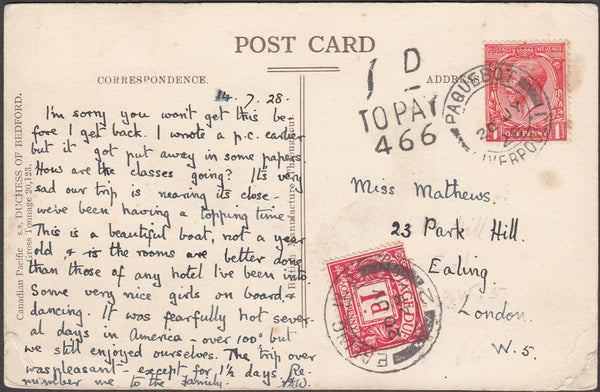 POST CARD
CORRESPONDENCE.
ADDRESS
Canadian Pacific s.s. DUCHESS OF BEDFORD.
Gross Tonnage 20,123.
British manufacture throughout
14.7.28.
I'm sorry you won't get this be
fore I get back. I wrote a p.c. earlier
but it got put away in some papers.
How are the classes going? Its very
sad our trip is nearing its close -
we've been having a topping time
This is a beautiful boat, not a year
old & is the rooms are better done
than those of any hotel I've been into.
Some very nice girls on board, &
dancing. It was fearfully hot sever-
al days in America - over 100° but
we still enjoyed ourselves. The trip over
was pleasant - except for 1½ days. Re-
member me to the family.
1 D
TO PAY
466
POSTAGE REVENUE
ONE PENNY
PAQUEBOT
LIVERPOOL
Miss Mathews.
23 Park Hill.
Ealing
London.
W.5.
POSTAGE DUE
1D
EALING